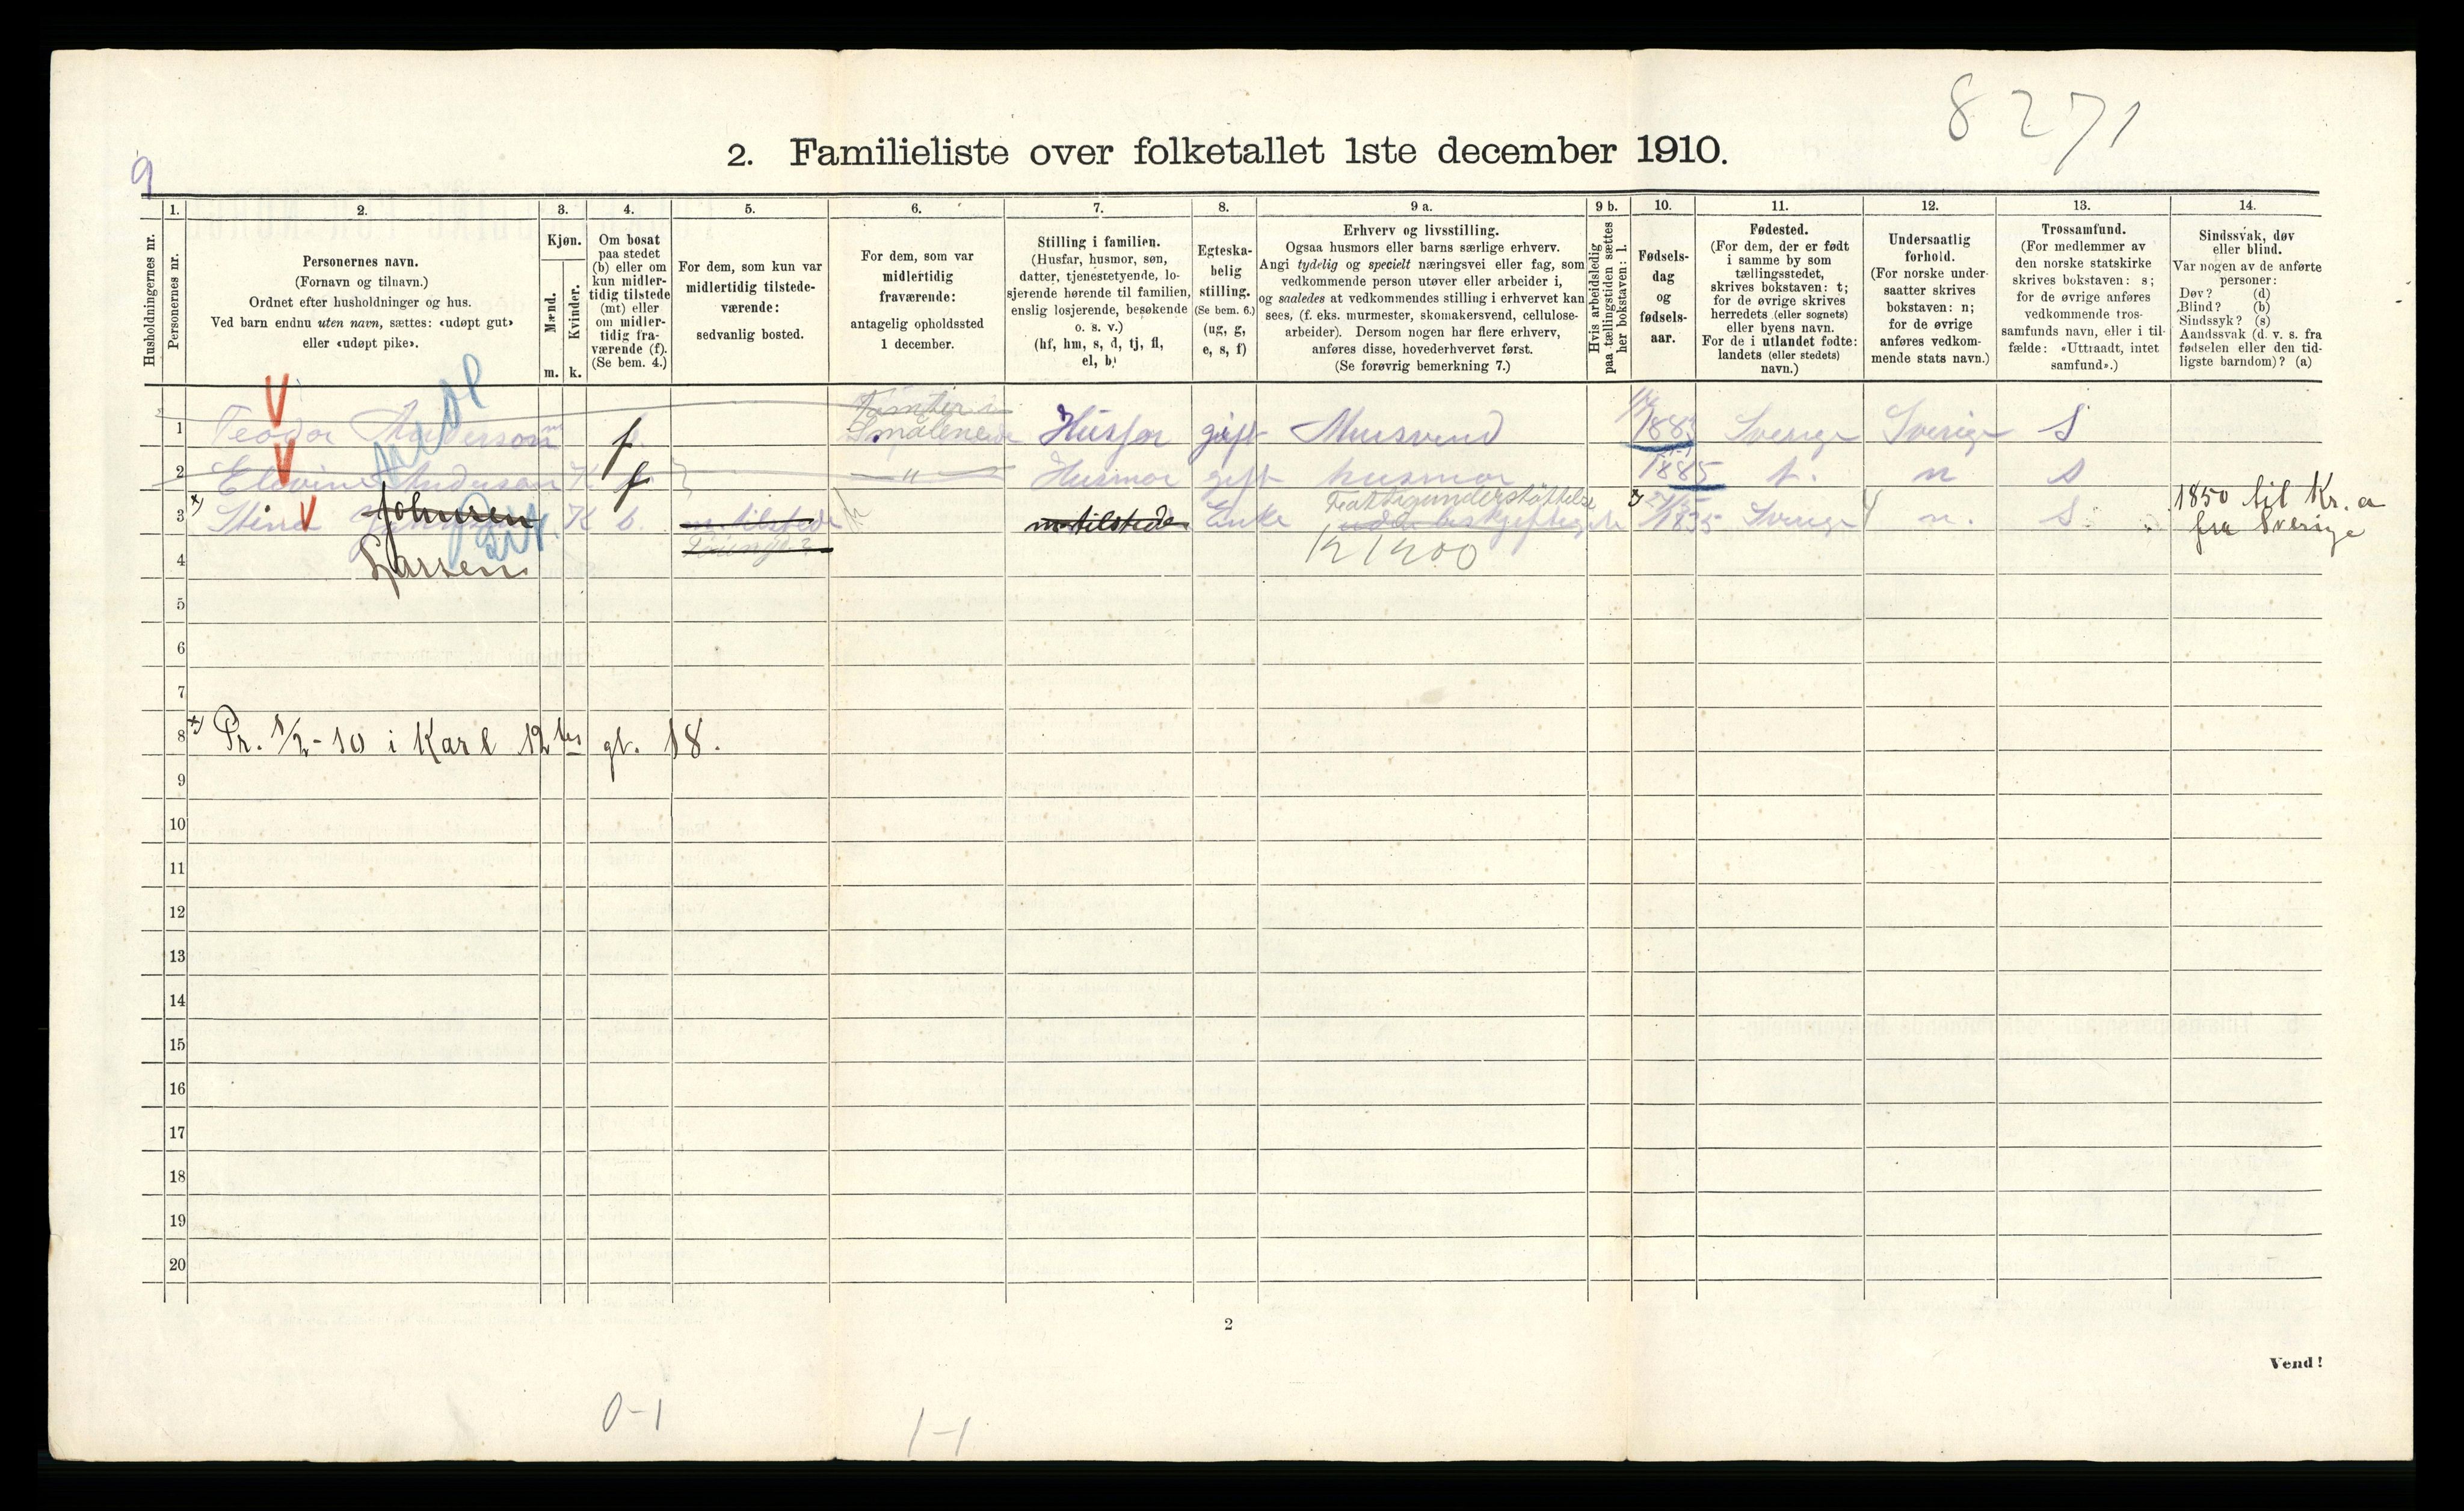 8271
9
2. Familieliste over folketallet 1ste december 1910.
Husholdningernes nr.
1.
Personernes nr.
2.
Personernes navn.
(Fornavn og tilnavn.)
Ordnet efter husholdninger og hus.
Ved barn endnu uten navn, sættes: «udøpt gut»
eller «udøpt pike».
3.
Kjøn.
Mænd.
Kvinder.
m. k.
4.
Om bosat
paa stedet
(b) eller om
kun midler-
tidig tilstede
(mt) eller
om midler-
tidig fra-
værende (f).
(Se bem. 4.)
5.
For dem, som kun var
midlertidig tilstede-
værende:
sedvanlig bosted.
6.
For dem, som var
midlertidig
fraværende:
antagelig opholdssted
1 december.
7.
Stilling i familien.
(Husfar, husmor, søn,
datter, tjenestetyende, lo-
sjerende hørende til familien,
enslig losjerende, besøkende
o. s. v.)
(hf, hm, s, d, tj, fl,
el, b)
8.
Egteska-
belig
stilling.
(Se bem. 6.)
(ug, g,
e, s, f)
9 a.
Erhverv og livsstilling.
Ogsaa husmors eller barns særlige erhverv.
Angi tydelig og specielt næringsvei eller fag, som
vedkommende person utøver eller arbeider i,
og saaledes at vedkommendes stilling i erhvervet kan
sees, (f. eks. murmester, skomakersvend, cellulose-
arbeider). Dersom nogen har flere erhverv,
anføres disse, hovederhvervet først.
(Se forøvrig bemerkning 7.)
9 b.
Hvis arbeidsledig
paa tællingstiden sættes
her bokstaven: l.
10.
Fødsels-
dag
og
fødsels-
aar.
11.
Fødested.
(For dem, der er født
i samme by som
tællingsstedet,
skrives bokstaven: t;
for de øvrige skrives
herredets (eller sognets)
eller byens navn.
For de i utlandet fødte:
landets (eller stedets)
navn.)
12.
Undersaatlig
forhold.
(For norske under-
saatter skrives
bokstaven: n;
for de øvrige
anføres vedkom-
mende stats navn.)
13.
Trossamfund.
(For medlemmer av
den norske statskirke
skrives bokstaven: s;
for de øvrige anføres
vedkommende tros-
samfunds navn, eller i til-
fælde: «Uttraadt, intet
samfund».)
14.
Sindssvak, døv
eller blind.
Var nogen av de anførte
personer:
Døv? (d)
Blind? (b)
Sindssyk? (s)
Aandssvak (d. v. s. fra
fødselen eller den tid-
ligste barndom)? (a)
1 Teodor Anderson m f Smaalenene Husfar gift 1883 Sverige Sverige S
2 Anderson K f " Husmor gift husmor 1885 t. n s
3 x) Stina Johnsen K b. m tilstede m tilstede Enke Fattigunderstøttelse 1835 Sverige n. S. 1850 til Kr. a
fra Sverige
4 Larsen 121200
5
6
7
8 x) Pr. 1/2-10 i Karl 12tes gt. 18.
9
10
11
12
13
14
15
16
17
18
19
20
2
Vend!
0-1
1-1